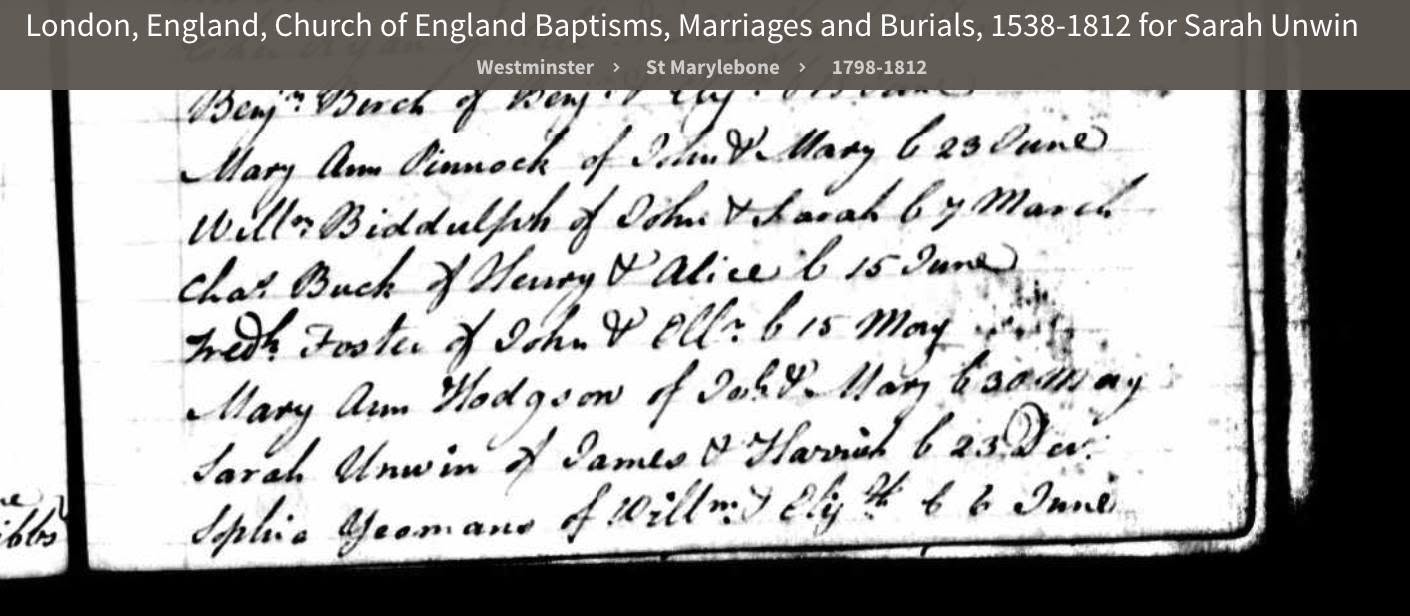 London, England, Church of England Baptisms, Marriages and Burials, 1538-1812 for Sarah Unwin
Westminster > St Marylebone > 1798-1812
Benjn Birch of Benj. & Eliz.
Mary Ann Pinnock of John & Mary b 23 June
Willm Biddulph of John & Sarah b 7 March
Chas. Buck of Henry & Alice b 15 June
Fredk Foster of John & Ellr b 15 May
Mary Ann Hodgson of Joh. & Mary b 30 May
Sarah Unwin of James & Harriet b 23 Dec.
ibbs
Sophia Yeomans of Willm & Elizth b 6 June